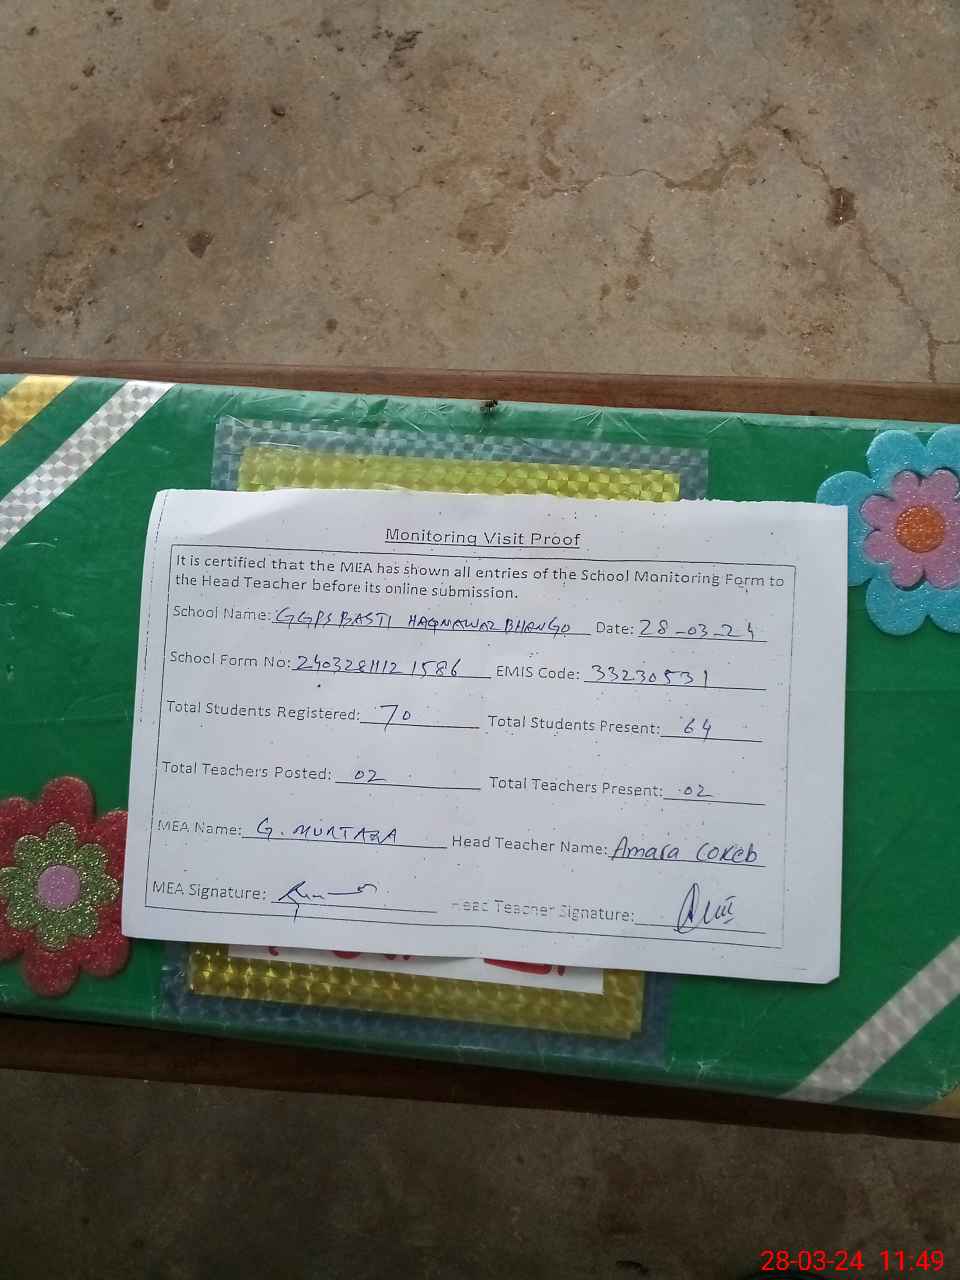 Monitoring Visit Proof
It is certified that the MEA has shown all entries of the School Monitoring Form to
the Head Teacher before its online submission.
School Name: GGPS BASTI HAQNAWAZ BHANGO Date: 28-03-24
School Form No: 2403281112 1586 EMIS Code: 33230531
Total Students Registered: 70 Total Students Present: 64
Total Teachers Posted: 02 Total Teachers Present: 02
MEA Name: G. MURTAZA Head Teacher Name: Amara
MEA Signature: Head Teacher Signature:
28-03-24 11:49